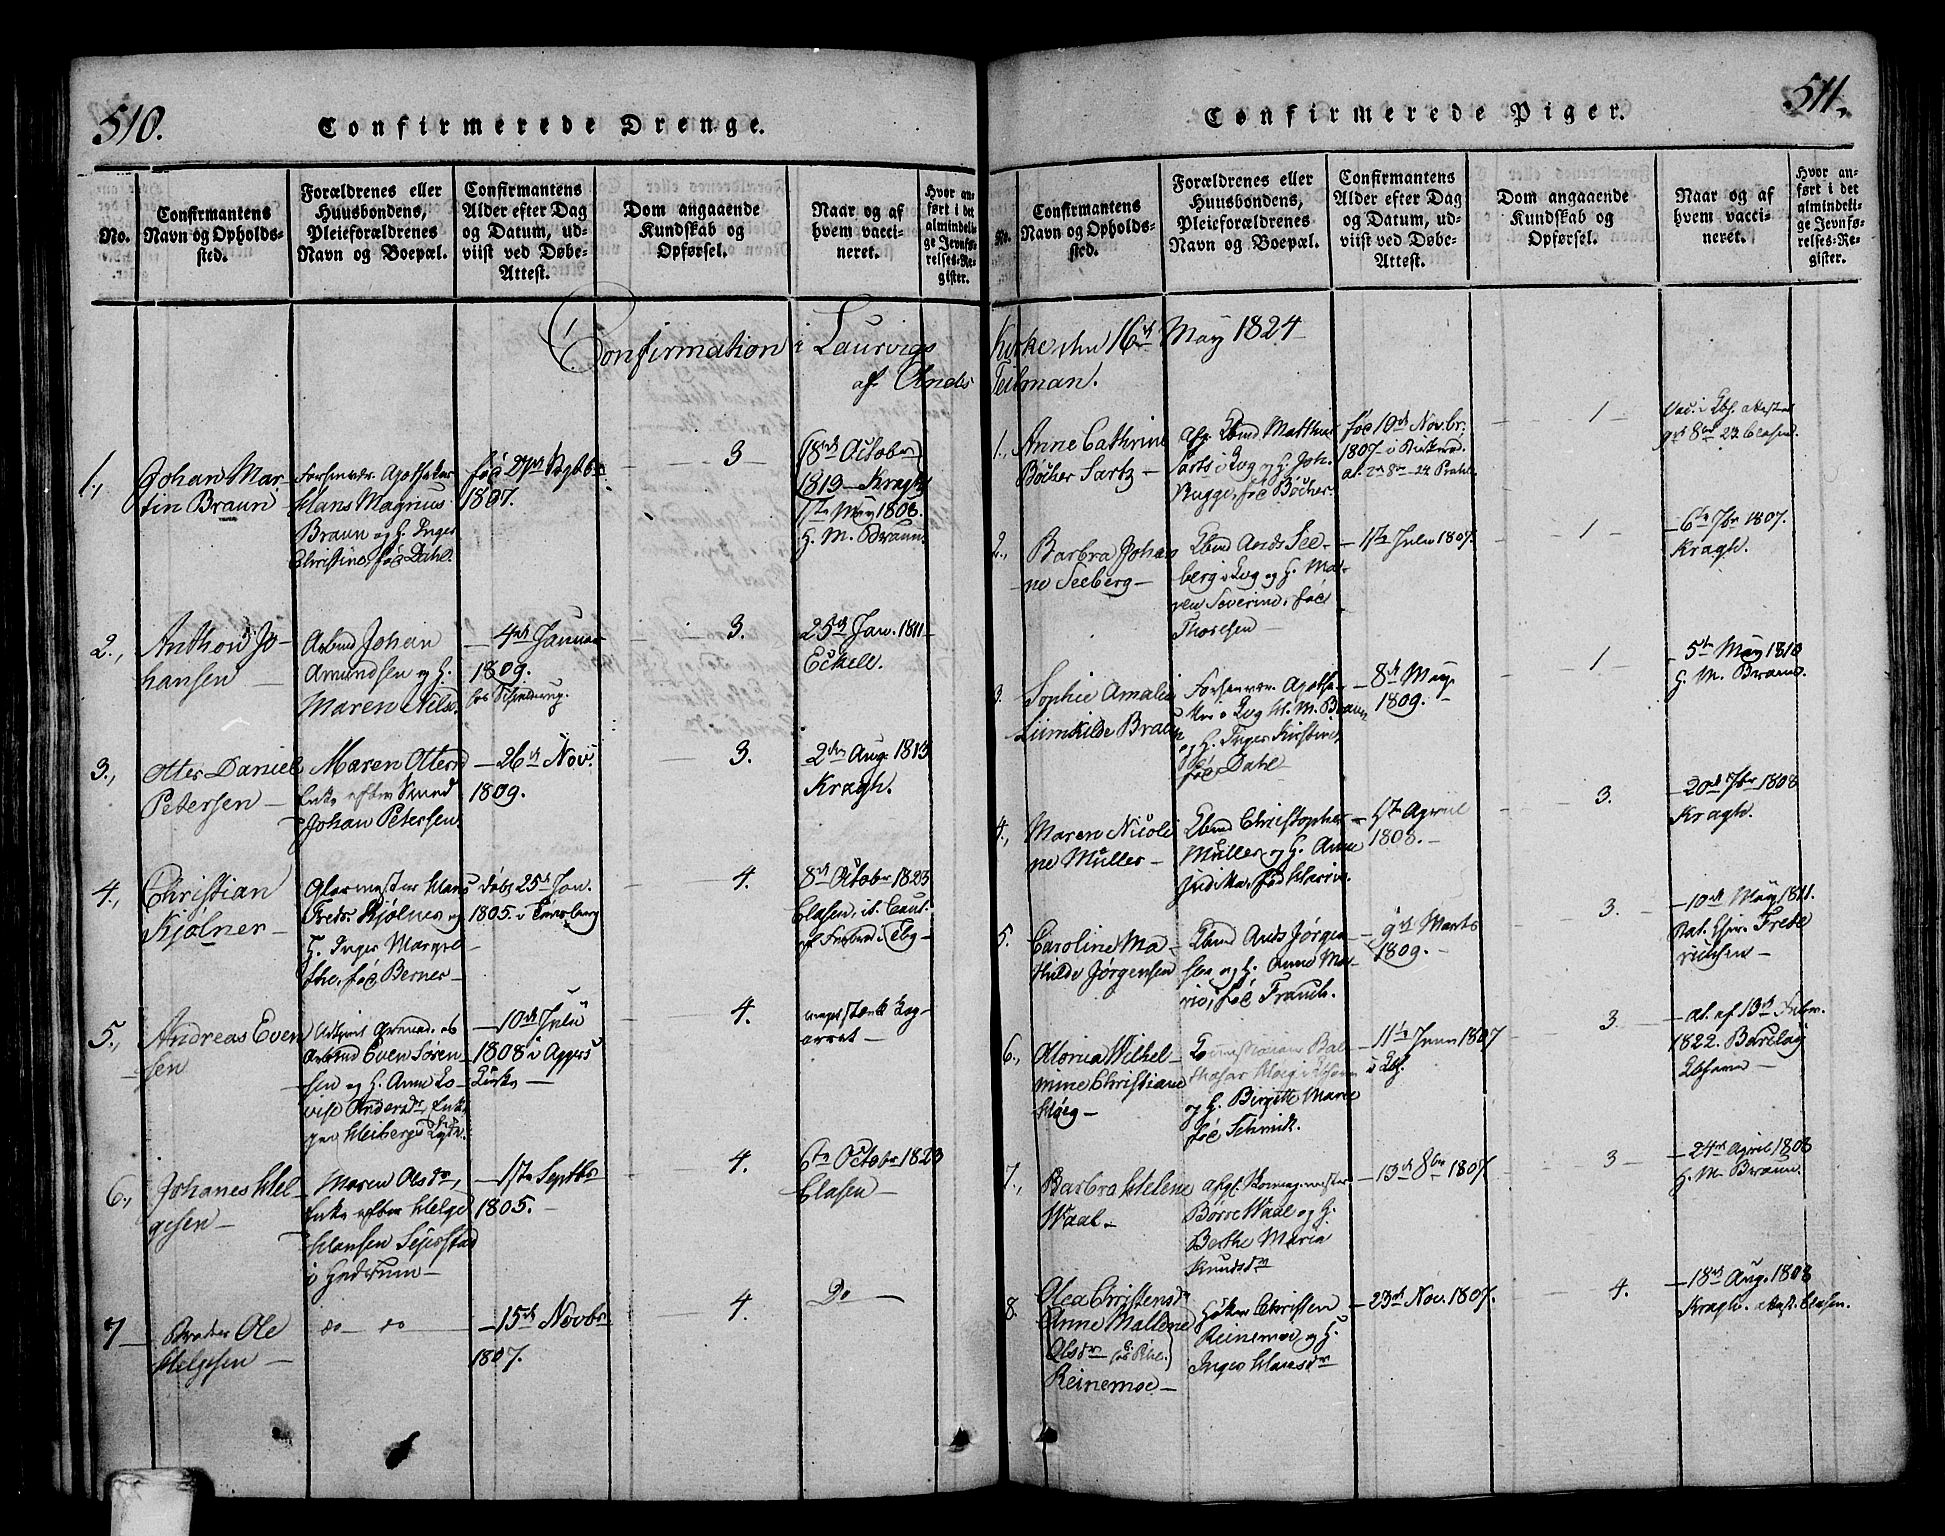 510.
Confirmerede Drenge.
No.
Confirmantens
Navn og Opholds-
sted.
Forældrenes eller
Huusbondens,
Pleieforældrenes
Navn og Boepæl.
Confirmantens
Alder efter Dag
og Datum, ud-
viist ved Døbe-
Attest.
Dom angaaende
Kundskab og
Opførsel.
Naar og af
hvem vacci-
neret.
Hvor an-
ført i det
almindeli-
ge Jevnfø-
relses-Re-
gister.
Confirmation i Laurvigs
af Ands
1.,
Johan Mar-
tin Braun
Forhenvær. Apotheker
Hans Magnus
Braun og H. Inger
Christine, fød Dahl.
fød 27de Septbr
1807.
3
18de Octobr
1819 Kragh
1ste May 1808.
H. M. Braun.
2.,
Anthon Jo-
hansen
Arbmd Johan
Amundsen og H.
Maren Nilsd.
4de Januar
1809.
3.
25de Jan. 1811
Eckell.
3.,
Otter Daniel
Petersen
Maren Ottersd
Enke efter
Johan Petersen.
26de Nov.
1809.
3.
2den Aug. 1813
Kragh.
4.,
Christian
Kjølner
Glarmester Hans
Fredr. Kjølner og
H. Inger Margre-
the, fød Berner
døbt 25de Jan.
1805. i Tønsberg
4.
8de Octobr 1823
Clasen, it.
5.,
Andreas Even
sen
Arbmd Even Søren-
sen og H. Anne Lo-
vise Andersdr, Enke
10de Julii
1808 i Aggers
Kirke
4.
6.,
Johanes Hel-
gesen
Maren Olsdr,
Enke efter Helge
Hansen Seierstad
i Hedrum
1ste Septbr
1805.
4.
6te Octobr 1823
Clasen
7
Broder Ole
Helgesen
do do
15de Novbr
1807.
4.
Do
511.
Confirmerede Piger.
No.
Confirmantens
Navn og Opholds-
sted.
Forældrenes eller
Huusbondens,
Pleieforældrenes
Navn og Boepæl.
Confirmantens
Alder efter Dag
og Datum, ud-
viist ved Døbe-
Attest.
Dom angaaende
Kundskab og
Opførsel.
Naar og af
hvem vacci-
neret.
Hvor an-
ført i det
almindeli-
ge Jevnfø-
relses-Re-
gister.
Kirke den 16de May 1824
Teilman.
1.,
Anne Cathrine
Bøcher Sartz
afg. Mathias
Sartz i Lvg og H. Joh.
Rugge, fød Bøcher.
fød 19de Novbr.
1807
1
2.,
Barbra Johan
ne Seeberg
Ands See-
berg i Lvg og H. Ma-
ren Severine, fød
Thoresen
1ste Julii 1807.
1
6te 7br 1807.
Kragh.
3.
Sophie Amalia
Liimkilde Braun
Forhenvær. Apothe-
ker i Lvg H. M. Braun
og H. Inger Kirstine,
fød Dahl
8de May
1809.
1
5te May 1810
H. M. Braun.
4.,
Maren Nicoli
ne Müller
Christopher
Müller og H. Anne
1ste April
1808.
3.
20de 7br 1808
Kragh.
5.
Caroline Ma-
thilde Jørgensen
Ands Jørgen-
sen og H. Anne Ma-
rie, fød Franck.
9de Marts
1809.
3.
10de May 1811.
Bat. Chir. Frede
richsen
6.,
Wilhel-
mine Christiane
Høeg
og H. Birgitte Marie
fød Schmidt.
11te Junii 1807
3
at. af 13de Febr.
1822. Barclay
7.,
Barbra Helene
Waal
Børre Waal og H.
Berthe Maria
Knudsdr
13de 8br 1807.
3
24de April 1808
H. M. Braun.
8.
Olea Christensdr
Anne Malene
Olsdr
Reinemoe
Christen
Reinemoe og H.
Inger Hansdr
23de Nov. 1807.
4.
18de Aug. 1808
Kragh. attest. Clasen.